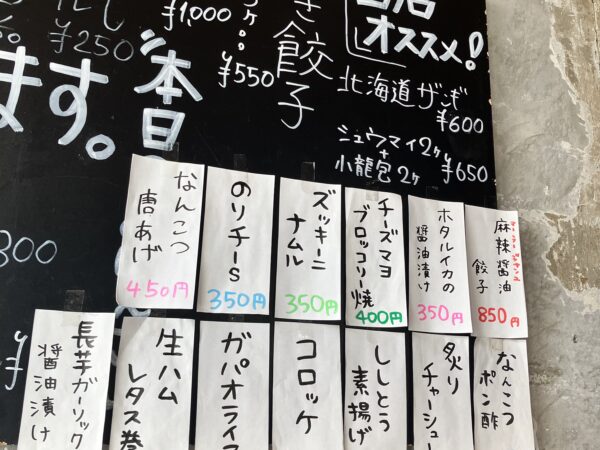 ¥1,000
¥250
ます。
本日
¥550
餃子
当店
オススメ!
北海道ザンギ
¥600
シュウマイ2ヶ
+
小龍包2ヶ
¥650
麻辣醤油
餃子
850円
ホタルイカの
醤油漬け
350円
チーズマヨ
ブロッコリー焼
400円
ズッキーニ
ナムル
350円
のりチーs
350円
なんこつ
唐あげ
450円
なんこつ
ポン酢
炙り
チャーシュー
ししとう
素揚げ
コロッケ
ガパオライス
生ハム
レタス巻
長芋ガーリック
醤油漬け